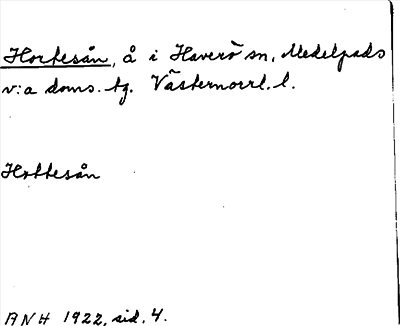 Hortesån, å i Haverö sn, Medelpads
v:a doms. tg. Västernorrl. l.
Hottesån
ANH 1922, sid. 4.